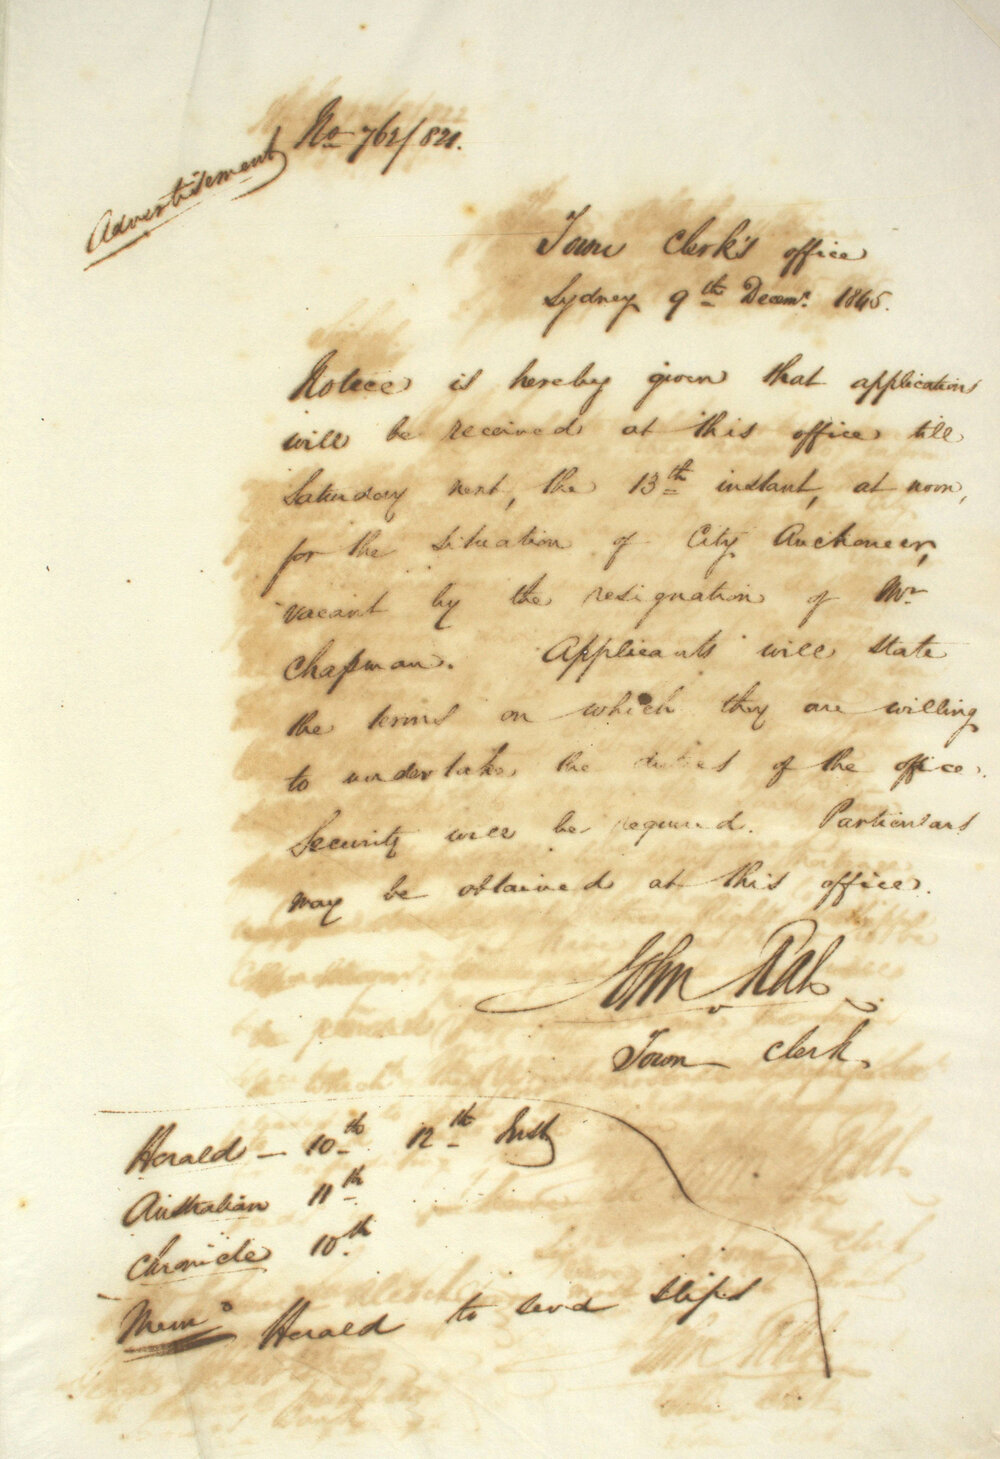 No 762/821.
Advertisement
Town Clerk's office
Sydney 9th Decemr. 1845.
Notice is hereby given that applications
will be received at this office till
Saturday next, the 13th instant, at noon,
for the situation of City Auctioneer,
vacant by the resignation of Mr
Chapman. Applicants will state
the terms on which they are willing
to undertake the duties of the office.
Security will be required. Particulars
may be obtained at this office.
John Rae
Town Clerk.
Herald - 10th 12th Inst
Australian 11th
Chronicle 10th
Memo Herald to send slips